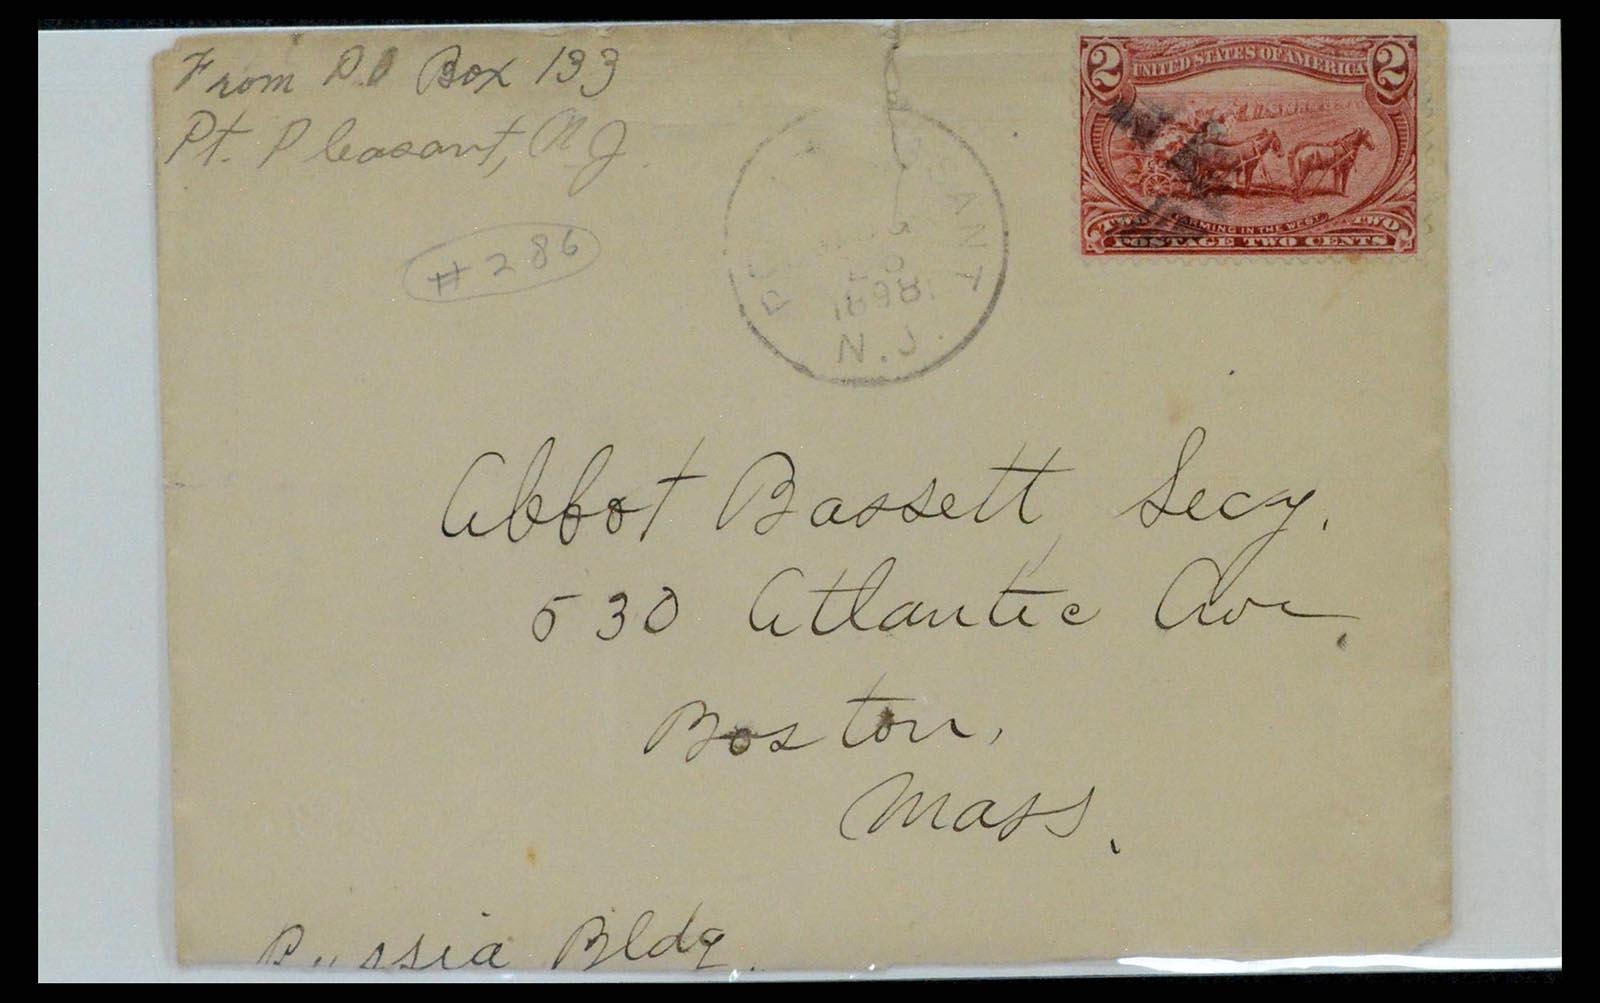 From P.O Box 133
Pt. Pleasant, N.J.
#286
SANT
20
1898
N.J.
2 UNITED STATES OF AMERICA 2
FARMING IN THE WEST
TWO TWO
POSTAGE TWO CENTS
Abbot Bassett, Secy.
530 Atlantic Ave.
Boston,
Mass.
Russia Bldg.